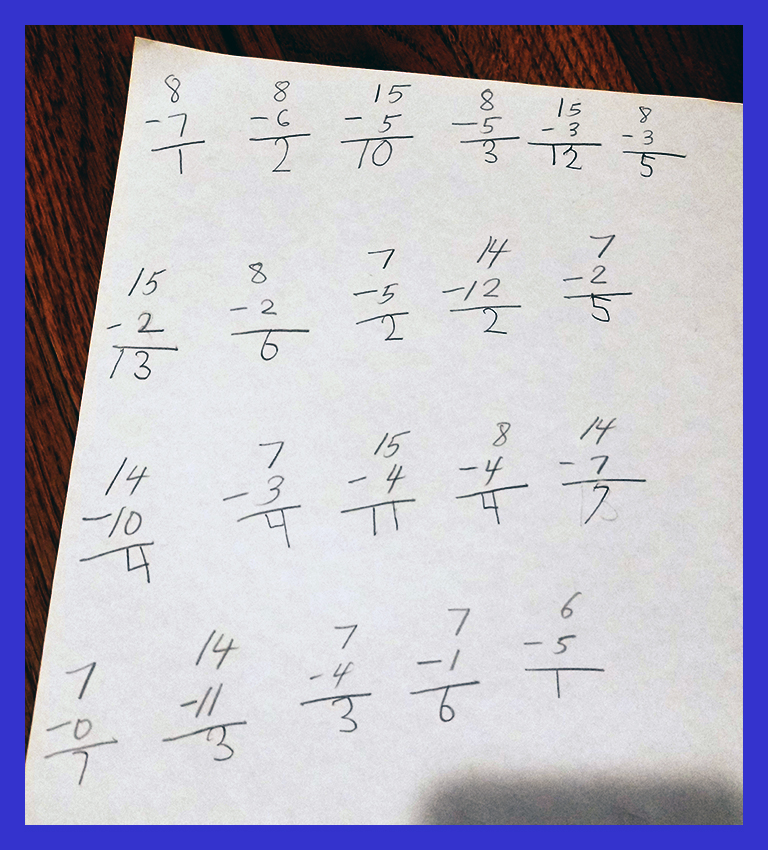 8 8 15 8 15 8
-7 -6 - 5 -5 -3 -3
1 2 10 3 12 5
15 8 7 14 7
-2 -2 -5 -12 -2
13 6 2 2 5
14 7 15 8 14
-10 -3 - 4 -4 -7
4 4 11 4 7
7 14 7 7 6
-0 -11 -4 -1 -5
7 3 3 6 1